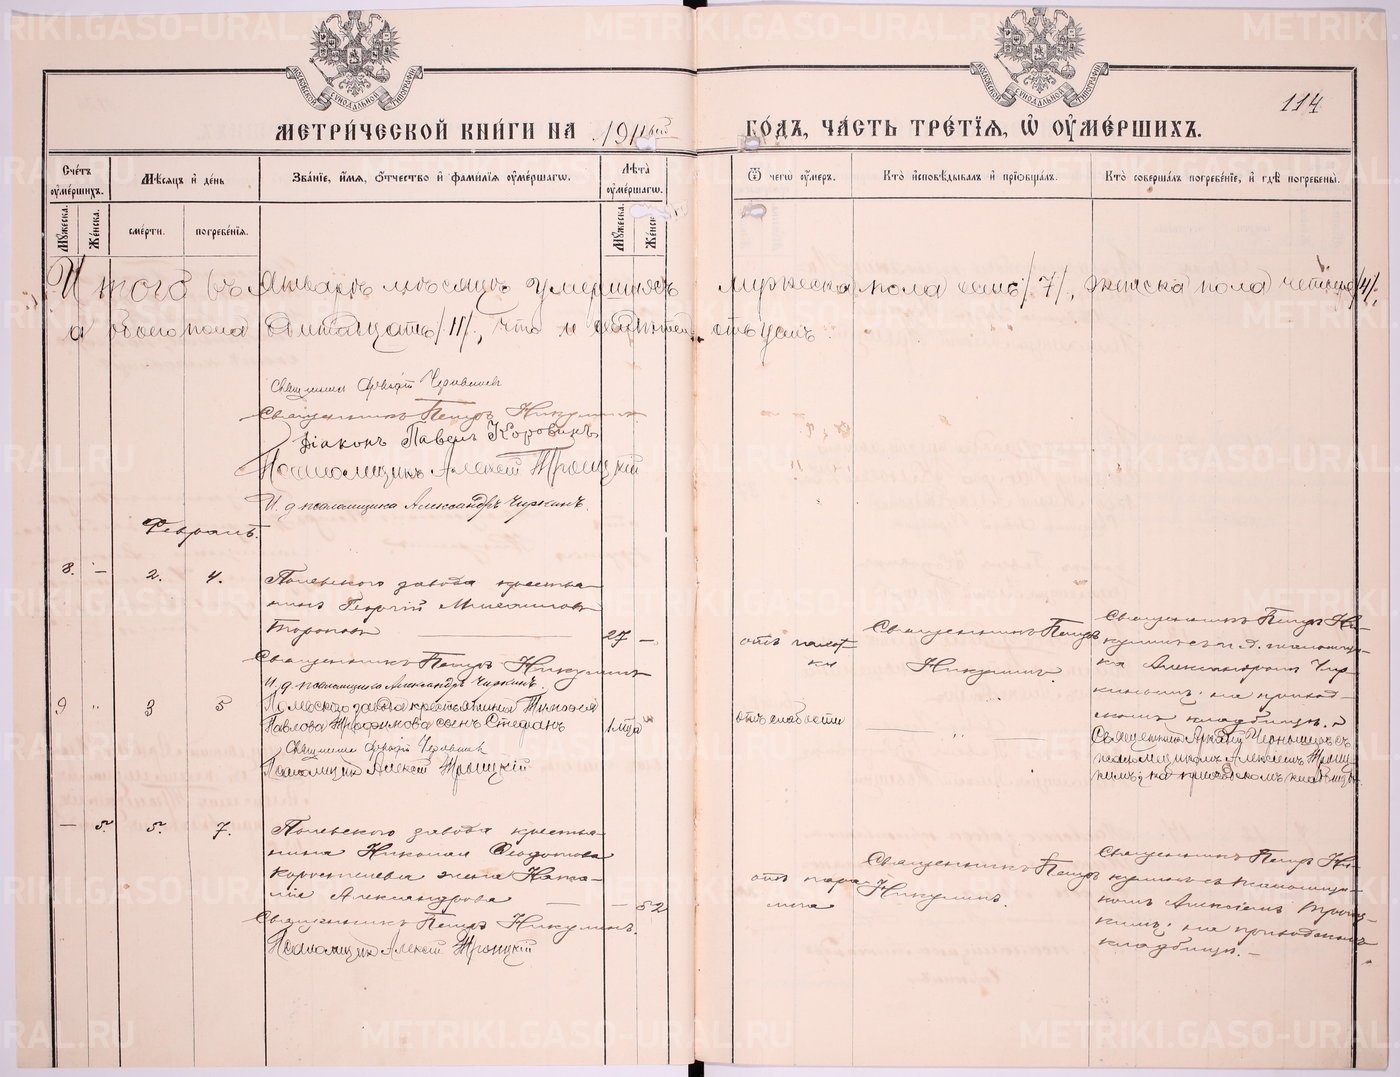 114
МЕТРИ́ЧЕСКОЙ КНИ́ГИ НА 1911вый ГО́ДЪ, ЧА́СТЬ ТРЕ́ТЇѦ, Ѡ҆ ОУ҆МЕ́РШИХЪ.
Сче́тъ оу҆ме́ршихъ.
Мѣ́сѧцъ и҆ де́нь
Зва́нїе, и҆́мѧ, ѻ҆́тчество и҆ фами́лїѧ оу҆ме́ршагѡ.
Лѣ́та оу҆ме́ршагѡ.
Ѿ чегѡ̀ оу҆́меръ.
Кто̀ и҆сповѣ́дывалъ и҆ прїѡбща́лъ.
Кто̀ соверша́лъ погребе́нїе, и҆ гдѣ̀ погребены̀.
Мꙋ́жеска. Же́нска. сме́рти. погребе́нїѧ. Мꙋ́жеска. Же́нска.
Итого въ Январѣ мѣсяцѣ умершихъ мужеска пола семь /7/, женска пола четыре /4/,
а обоего пола одинадцать /11/, что и свидѣтельствуемъ.
Священникъ Аркадій Чернышевъ
Священникъ Петръ Никулинъ
Діаконъ Павелъ Коровинъ
Псаломщикъ Алексій Троицкій
И. д. псаломщика Александръ Чиркинъ.
Февраль.
8. – 2. 4. Полевскаго завода крестья-
нинъ Георгій
27 –
отъ чахот-
ки
Священникъ Петръ
Никулинъ
Священникъ Петръ Ни-
кулинъ съ и. д. псаломщи-
ка Александромъ Чир-
кинымъ; на приход-
скомъ кладбищѣ.
Священникъ Петръ Никулинъ
И. д. псаломщика Александръ Чиркинъ.
9 " 3 5 Полевскаго завода крестьянина Тимофея
Павлова Трофимова сынъ Стефанъ 1 мѣс
отъ слабости
"
Священникъ Аркадій Чернышевъ съ
псаломщикомъ Алексіемъ Троиц-
кимъ; на приходскомъ кладбищѣ.
Священникъ Аркадій Чернышевъ
Псаломщикъ Алексій Троицкій
– 5. 5. 7. Полевскаго завода крестья-
нина Николая Феодотова
жена Ната-
лія Александрова – 52
отъ пара-
лича
Священникъ Петръ
Никулинъ.
Священникъ Петръ Ни-
кулинъ съ псаломщи-
комъ Алексіемъ Троиц-
кимъ; на приходскомъ
кладбищѣ.
Священникъ Петръ Никулинъ.
Псаломщикъ Алексій Троицкій
METRIKI.GASO-URAL.RU